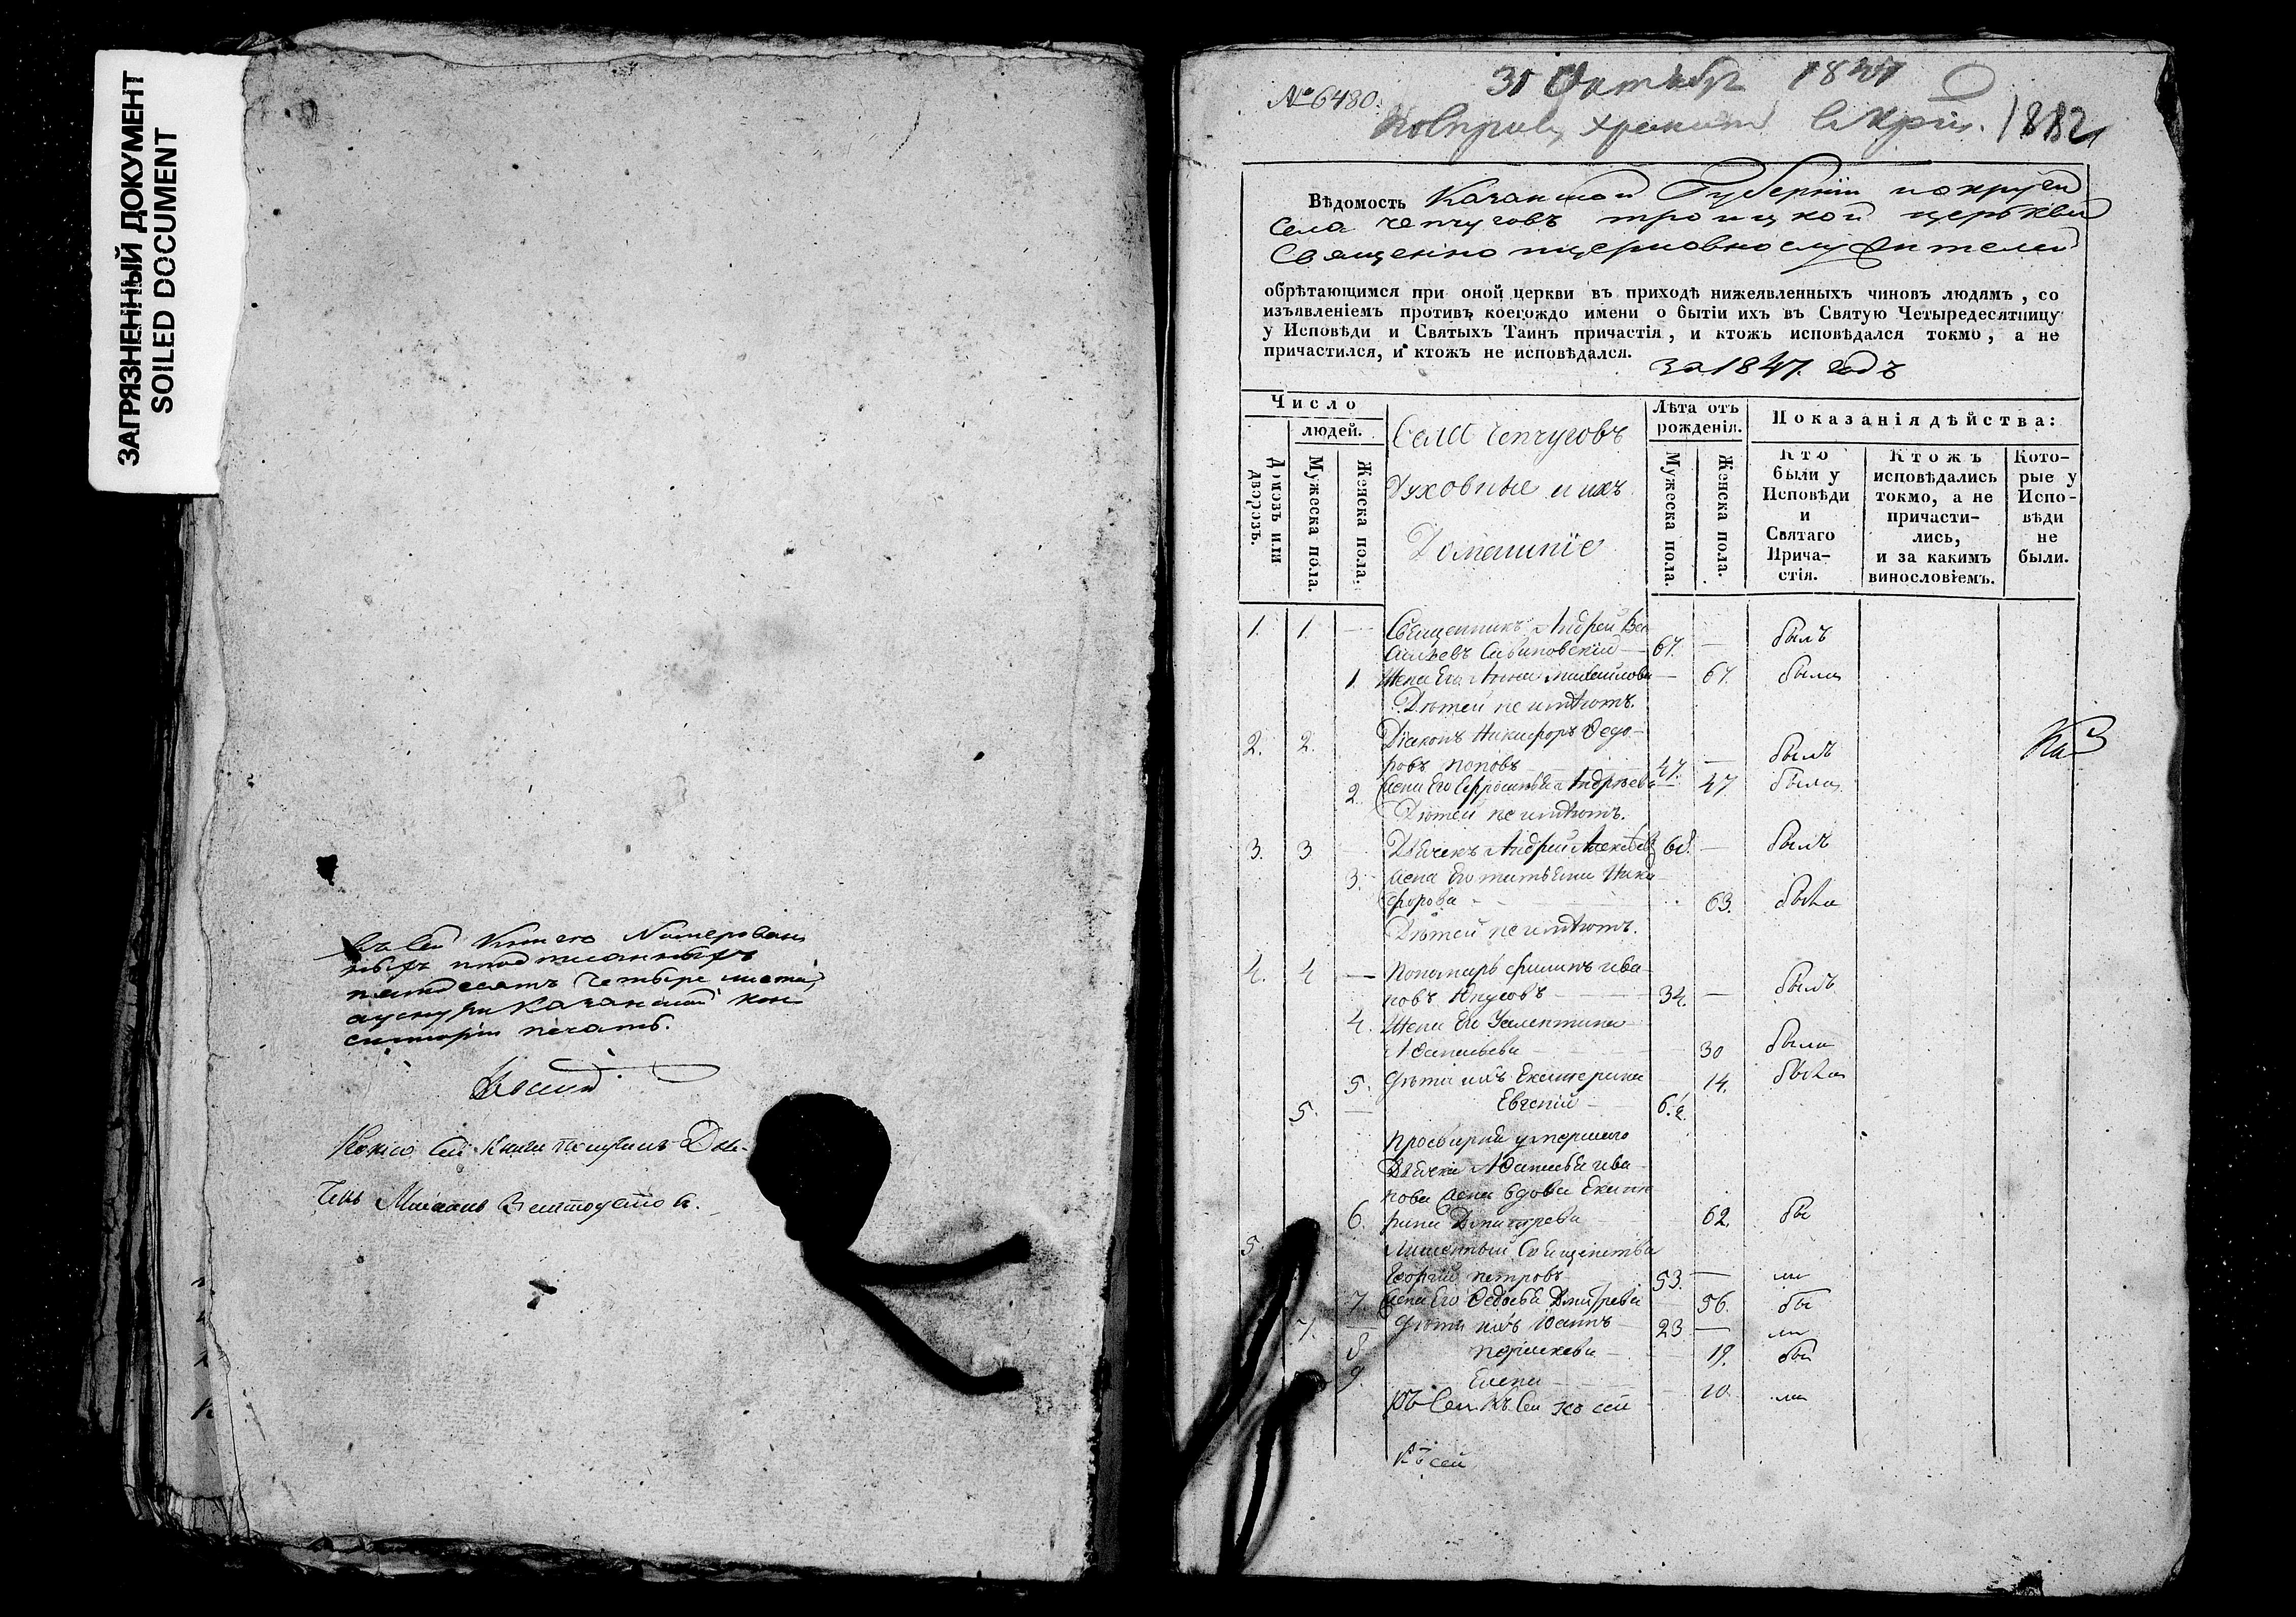 ЗАГРЯЗНЕННЫЙ ДОКУМЕНТ
SOILED DOCUMENT
въ сей книге Нумерован
ныхъ
пятдесятъ четыре листа,
Казанской кон
систоріи печать.
сей книги
Михаилъ
№ 6480.
31 Октября 1847
1882
Вѣдомость Казанской Губерніи и округи
Села Чепчуговъ троицкой церькви
Священно церковнослужителей
обрѣтающимся при оной церкви въ приходѣ нижеявленныхъ чиновъ людямъ, со
изъявленіемъ противъ коегождо имени о бытіи ихъ въ Святую Четыредесятницу
у Исповѣди и Святыхъ Таинъ причастія, и ктожъ исповѣдался токмо, а не
причастился, и ктожъ не исповѣдался.
за 1847. годъ
Число
людей.
Домовъ или дворовъ.
Мужеска пола.
Женска пола.
Села Чепчуговъ
Духовные и ихъ
Домашніе
Лѣта отъ
рожденія.
Мужеска пола.
Женска пола.
Показанія дѣйства:
Кто
были у
Исповѣди
и
Святаго
Прича-
стія.
Ктожъ
исповѣдались
токмо, а не
причасти-
лись,
и за какимъ
винословіемъ.
Кото-
рые у
Испо-
вѣди
не
были.
1. 1. — Священникъ Андрей Ва
сильевъ — 67. — былъ
1. Жена Его Анна Михайлова — 67. была
Дѣтей не имѣютъ.
2. 2. Діаконъ Никифоръ Ѳедо-
ровъ Поповъ 47. — былъ
2. Жена Его Ефросинья Андреева — 47 была
Дѣтей не имѣютъ.
3. 3 Дьячекъ Андрей Алексѣевъ 68. — былъ
3. Жена Его татьяна Ники
форова 63. была
Дѣтей не имѣютъ.
4. 4 — Пономарь филипъ ива-
новъ 34. — былъ
4. Жена Его
Афанасьева 30 была
5. Дѣти ихъ Екатерина 14. была
5. — Евгеній 6.
Просвирня умершаго
Дьячка Афанасья ива
нова жена вдова Екате
6. рина Дмитрева 62. бы
5. Лишенный Священства
Георгій петровъ 53. — ли
7 жена Его Ѳедосья Дмитрева 56. бы
7. — Дѣти ихъ Іоаннъ 23 — ли
8 парасковья 19. бы
9. Елена 10 ли
Къ сей Къ сей Ко сей
Къ сей